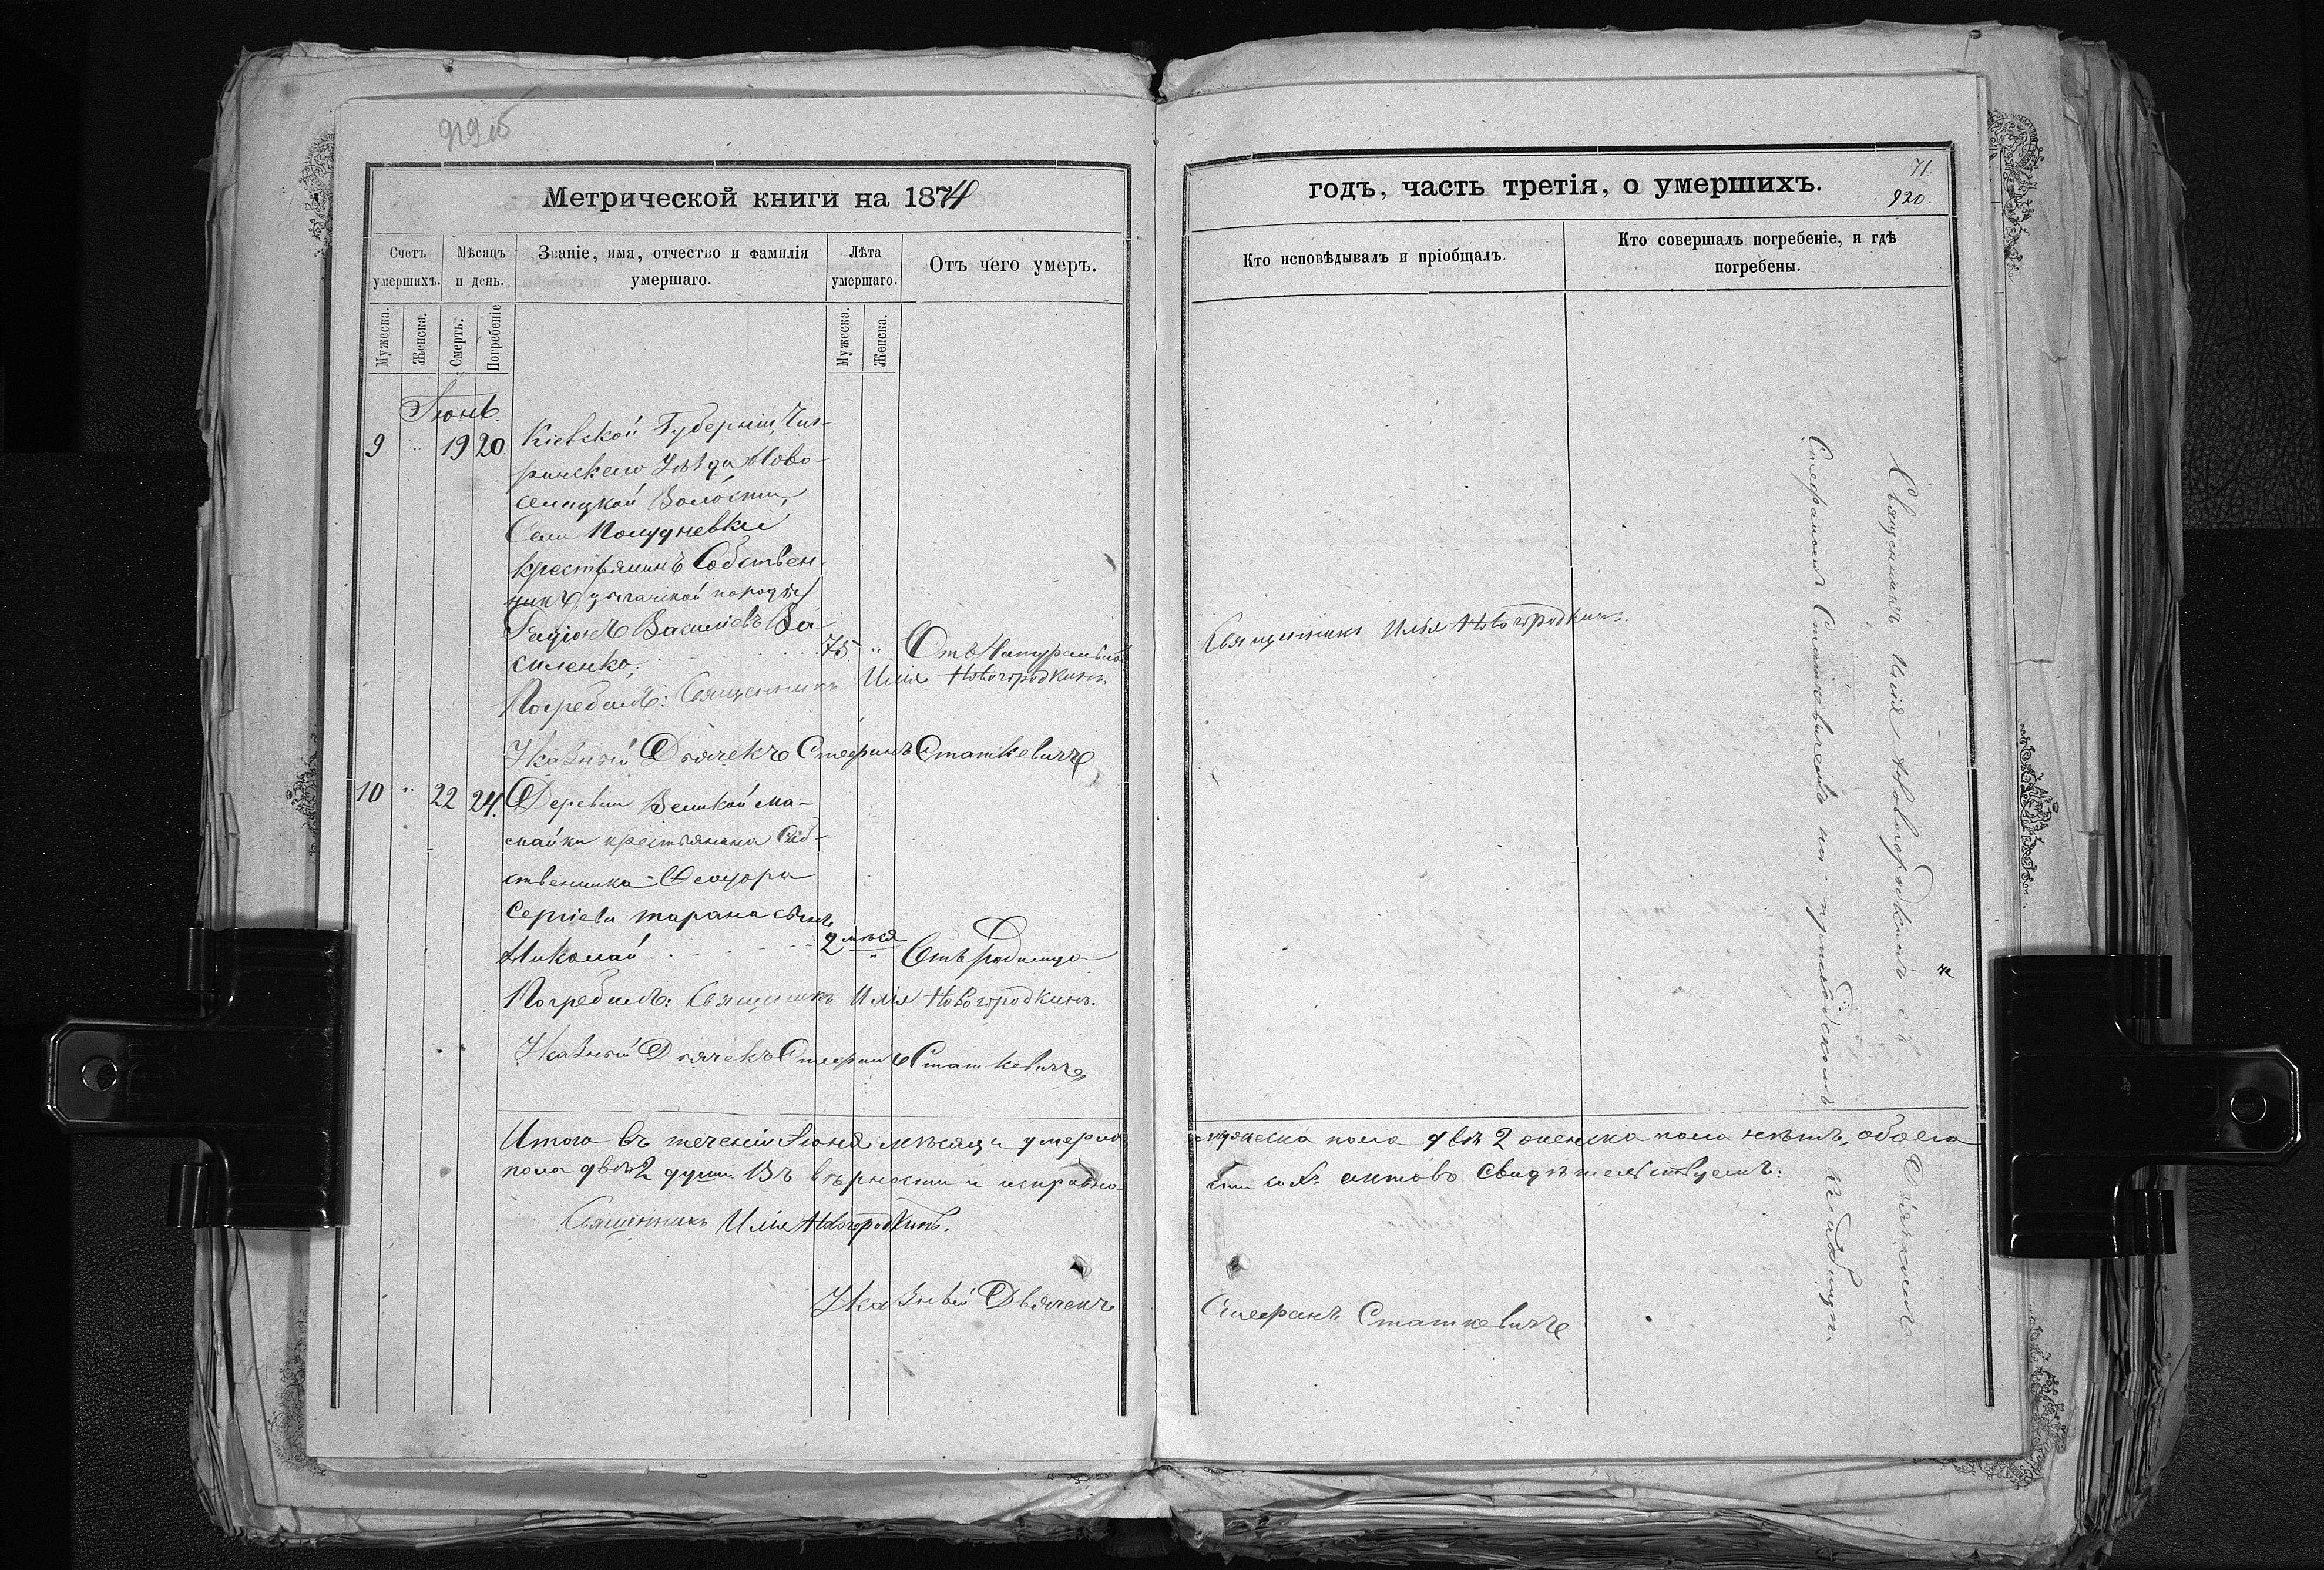 919об
Метрической книги на 1874
Счетъ умершихъ.
Мѣсяцъ и день.
Званіе, имя, отчество и фамилія умершаго.
Лѣта умершаго.
Отъ чего умеръ.
Мужеска.
Женска.
Смерть.
Погребеніе
Мужеска.
Женска.
Іюнь.
9 " 19 20. Кіевской Губерніи, Чиг-
ринскаго Уѣзда Ново-
селицкой Волости,
Села Полудневки
крестьянинъ Собствен-
никъ, цыганской породы
Радіонъ Василіевъ Ва-
силенко; 75. " Отъ Натуральной
Погребалъ: Священникъ Илія Новогородкинъ.
Указный Дьячекъ Стефанъ Статкевичъ
10 " 22 24. Деревни Великой Ма-
майки крестьянина Соб-
ственника Феодора
Сергіева Тарана сынъ
Николай 2 мѣся " Отъ родимца
Погребалъ: Священникъ Илія Новогородкинъ.
Указный Дьячекъ Стефанъ Статкевичъ
Итого въ теченіи Іюня мѣсяца умерло
пола двѣ 2 души. Въ вѣрности и исправно-
Священникъ Илія Новогородкинъ.
Указный Дьячекъ
годъ, часть третія, о умершихъ.
71.
920.
Кто исповѣдывалъ и пріобщалъ.
Кто совершалъ погребеніе, и гдѣ
погребены.
Священникъ Илія Новогородкинъ.
Священникъ Илія Новогородкинъ съ Дьячкомъ
Стефаномъ Статкевичемъ на приходскомъ кладбищѣ.
мужеска пола двѣ 2 женска пола нѣтъ, обоего
сти сихъ актовъ свидѣтельствуемъ:
Стефанъ Статкевичъ